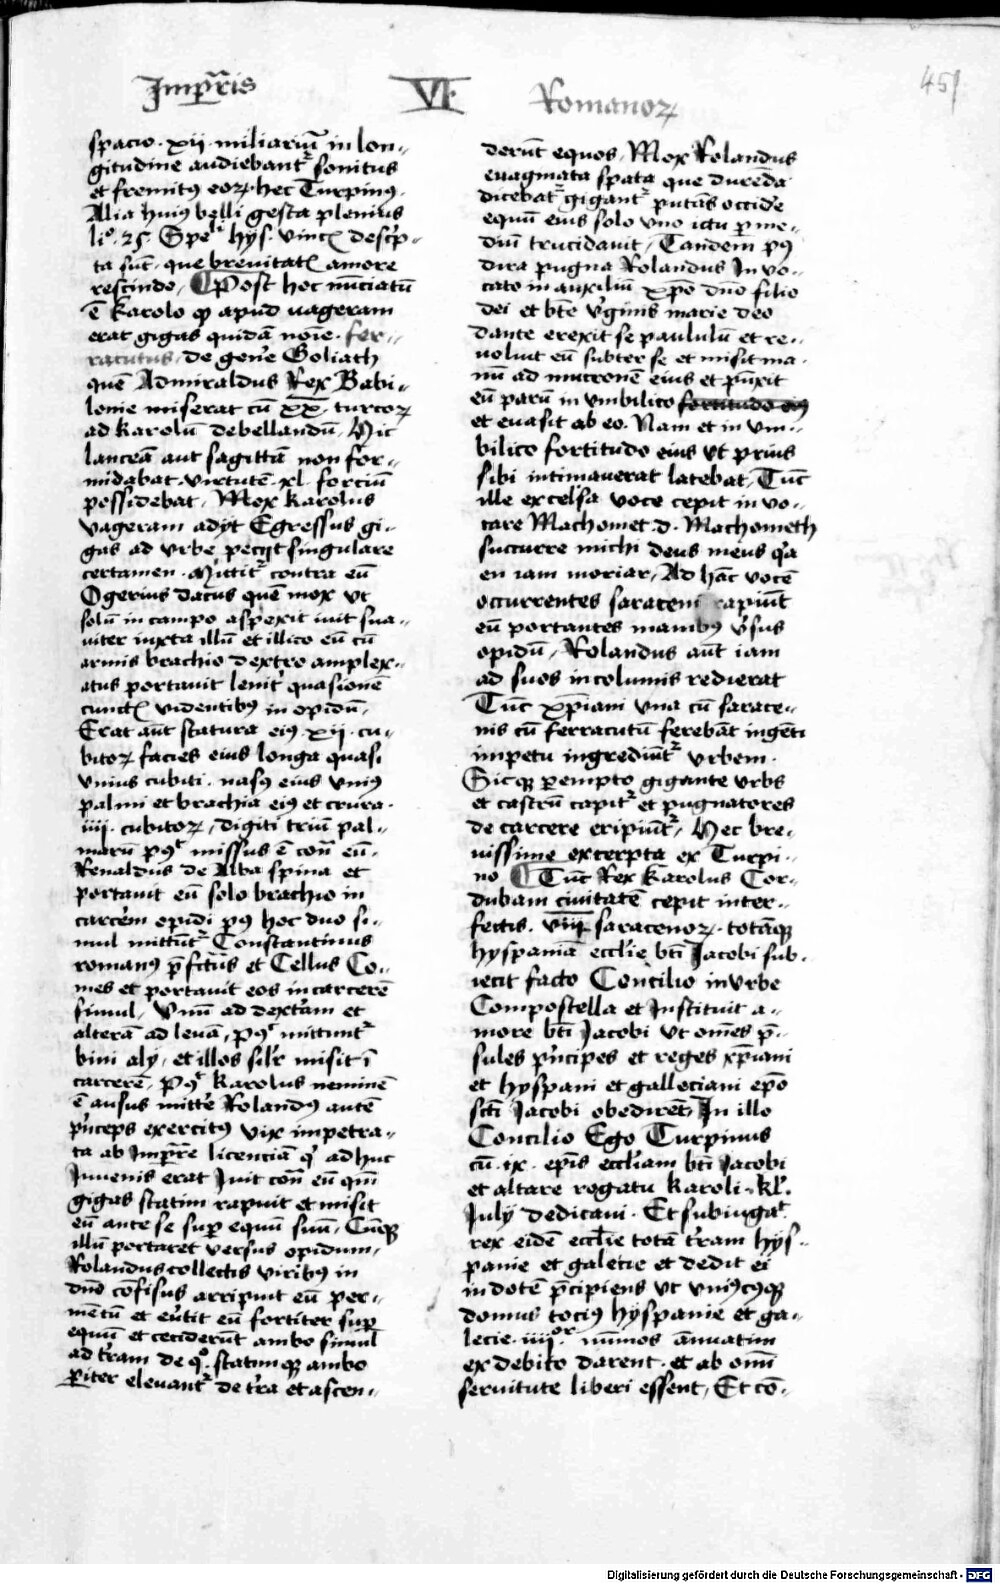 Imperr̄is VI Romanoꝝ 451
spacio · xij · miliariū in lon-
gitudine audiebant᷑ sonitus
et fremitꝰ eoꝝ · hec Turpinꝰ ·
Alia huiꝰ belli gesta plenius
li° · 25 · Speᶜˡⁱ hys · vincē descͥp-
ta sūt · que brevitatꝭ amore
rescindo / Post hoc nūciatū
ē karolo ꝙ apud vageram
erat gigas quidā noīe · fer-
racutus · de genᵉe Goliath
quē Admiraldus Rex Babi-
lonie miserat cū xx · turcoꝝ
ad karolū debellandū / Hic
lanceā aut sagittā non for-
midabat · virtutē · xl · forciū
possidebat / Mox karolus
vageram adijt Egressus gi-
gas ad vrbe peciit singulare
certamen · Mittit᷑ contra eū
Ogerius dacus quē mox vt
solū in campo aspexit iuit sua-
viter iuxta illū et illico eū cū
armis brachio dextro amplex-
atus portauit lenit᷑ quasi onē
cunctꝭ videntibꝰ in opidū /
Erat aūt statura eiꝰ · xij · cu-
bitoꝝ facies eius longa quasi
vnius cubiti · nasꝰ eius vniꝰ
palmi et brachia eiꝰ et crura ·
iiij · cubitoꝝ / digiti triū pal-
marū pꝰᵗ missus ē con̄ eū ·
Renaldus de Alba spina et
portauit eū solo brachio in
carcēm opidi pꝰ hoc duo si-
mul mittūt᷑ Constantinus
romanꝰ p̄fctūs et Cellus Co-
mes et portauit eos in carcerē
simul / Vnū ad dextrā et
alterā ad leuā / pꝰᵗ mittunt᷑
bini alij / et illos sil᷑r misit ī
carcerē / pꝰᵗ karolus neminē
ē ausus mittᵉe Rolandꝰ autē
pͥnceps exercitꝰ vix impetra-
ta ab Imper̄re licenciā qͥ adhuc
Juvenis erat Juit con̄ eū qm̄
gigas statim rapuit et misit
eū ante se sup equū suū / Cūqꝫ
illū portaret versus opidum /
Rolandus collectis viribꝰ in
dn̄o cōfisus arripuit eū per
mētū et eūtit eū fortiter sup
equū et ceciderūt ambo simul
ad tr̄am de qͦ · statimqꝫ ambo
ꝑiter elevant᷑ de tr̄a et ascen-
derūt equos / Mox Rolandus
evaginata spata que durēda
dicebat᷑ gigant᷑ putās occidᵉe
equū eius solo vno ictu ꝑ me-
diū trucidauit / Tandem pꝰ
dira pugna Rolandus In vo-
cato in auxiliū xp̄o dn̄o filio
dei et bt̄e vͥginis marie deo
dante erexit se paululū et re-
voluit eū subter se et misit ma-
nū ad mucronē eius et pūxit
eū parū in vmbilico fortitudo eiꝰ
et euasit ab eo · Nam et in vm-
bilico fortitudo eius vt prius
sibi intimauerat latebat / Tūc
ille excelsa voce cepit in vo-
care Machomet d · Machometh
succurre michi deus meus qͣa
en iam moriar / Ad hāc vocē
occurrentes saraceni rapiūt
eū portantes manibꝰ vͥsus
opidū / Rolandus aūt iam
ad suos incolumis redierat
Tūc xp̄iani vna cū sarace-
nis cū ferracutū ferebāt ingēti
impetu ingrediūt᷑ vrbem ·
Sicqꝫ ꝑempto gigante vrbs
et castrū capit᷑ et pugnatores
de carcere eripiūt᷑ / Hec bre-
uissime excerpta ex Turpi-
no Tūc Rex karolus Cor-
dubam civitatē cepit inter-
fectis · viij · saracenoꝝ · totāqꝫ
hyspaniā eccl̄ie bt̄i Jacobi sub-
iecit facto Concilio in vrbe
Compostella et Instituit a-
more bt̄i Jacobi vt om̄es p̄-
sules pͥncipes et reges xp̄iani
et hyspani et galleciani ep̄o
sct̄i Jacobi obedirēt In illo
Concilio Ego Turpinus
cū · ix · ep̄is eccl̄iam bt̄i Jacobi
et altare rogatu karoli · kl̄ ·
Julij dedicaui · Et subiugat᷑
rex eidē eccl̄ie totā tr̄am hys-
panie et galecie et dedit ei
in dotē p̄cipiens vt vniꝰcꝰqꝫ
domus tociꝰ hyspanie et ga-
lecie · iiijᵒʳ · nūmos ānuatim
ex debito darent · et ab omī
seruitute liberi essent / Et cō-
Digitalisierung gefördert durch die Deutsche Forschungsgemeinschaft - DFG